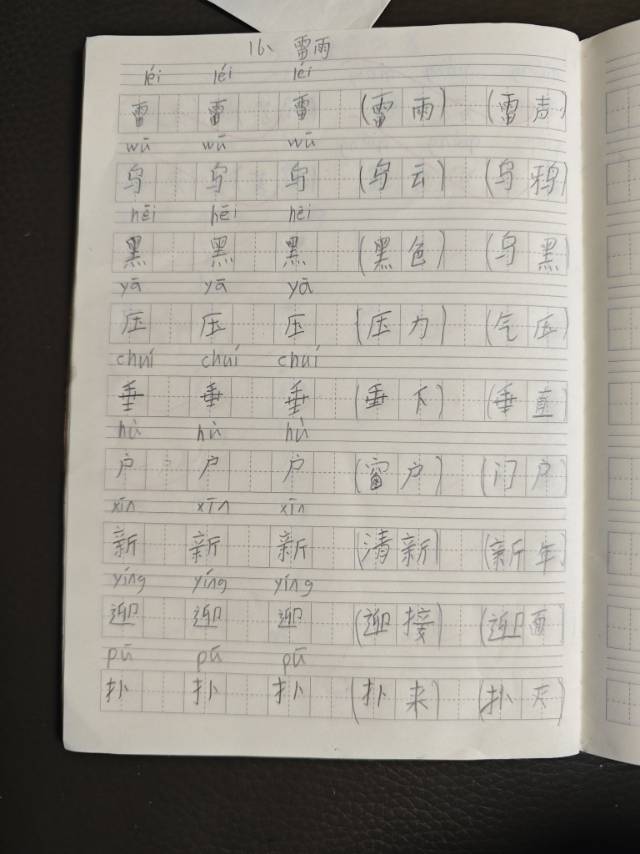 16、雷雨
léi léi léi
雷 雷 雷 (雷雨) (雷声)
wū wū wū
乌 乌 乌 (乌云) (乌鸦)
hēi hēi hēi
黑 黑 黑 (黑色) (乌黑)
yā yā yā
压 压 压 (压力) (气压)
chuí chuí chuí
垂 垂 垂 (垂下) (垂直)
hù hù hù
户 户 户 (窗户) (门户)
xīn xīn xīn
新 新 新 (清新) (新年)
yíng yíng yíng
迎 迎 迎 (迎接) (迎面)
pū pū pū
扑 扑 扑 (扑来) (扑灭)